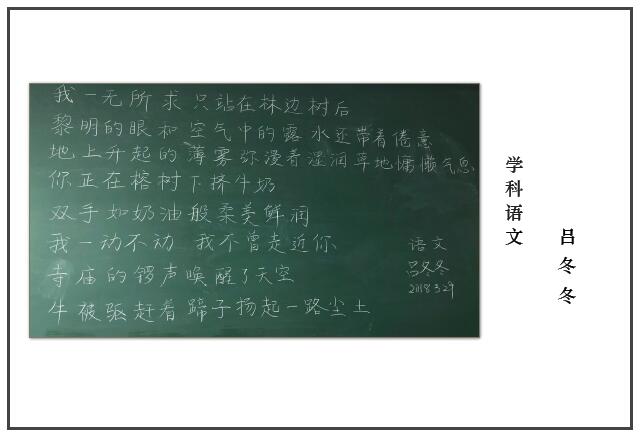 我一无所求只站在林边树后
黎明的眼和空气中的露水还带着倦意
地上升起的薄雾弥漫着湿润草地慵懒气息
你正在榕树下挤牛奶
双手如奶油般柔美鲜润
我一动不动 我不曾走近你
寺庙的锣声唤醒了天空
牛被驱赶着蹄子扬起一路尘土
语文
吕冬冬
2018 3 29
学科语文
吕冬冬